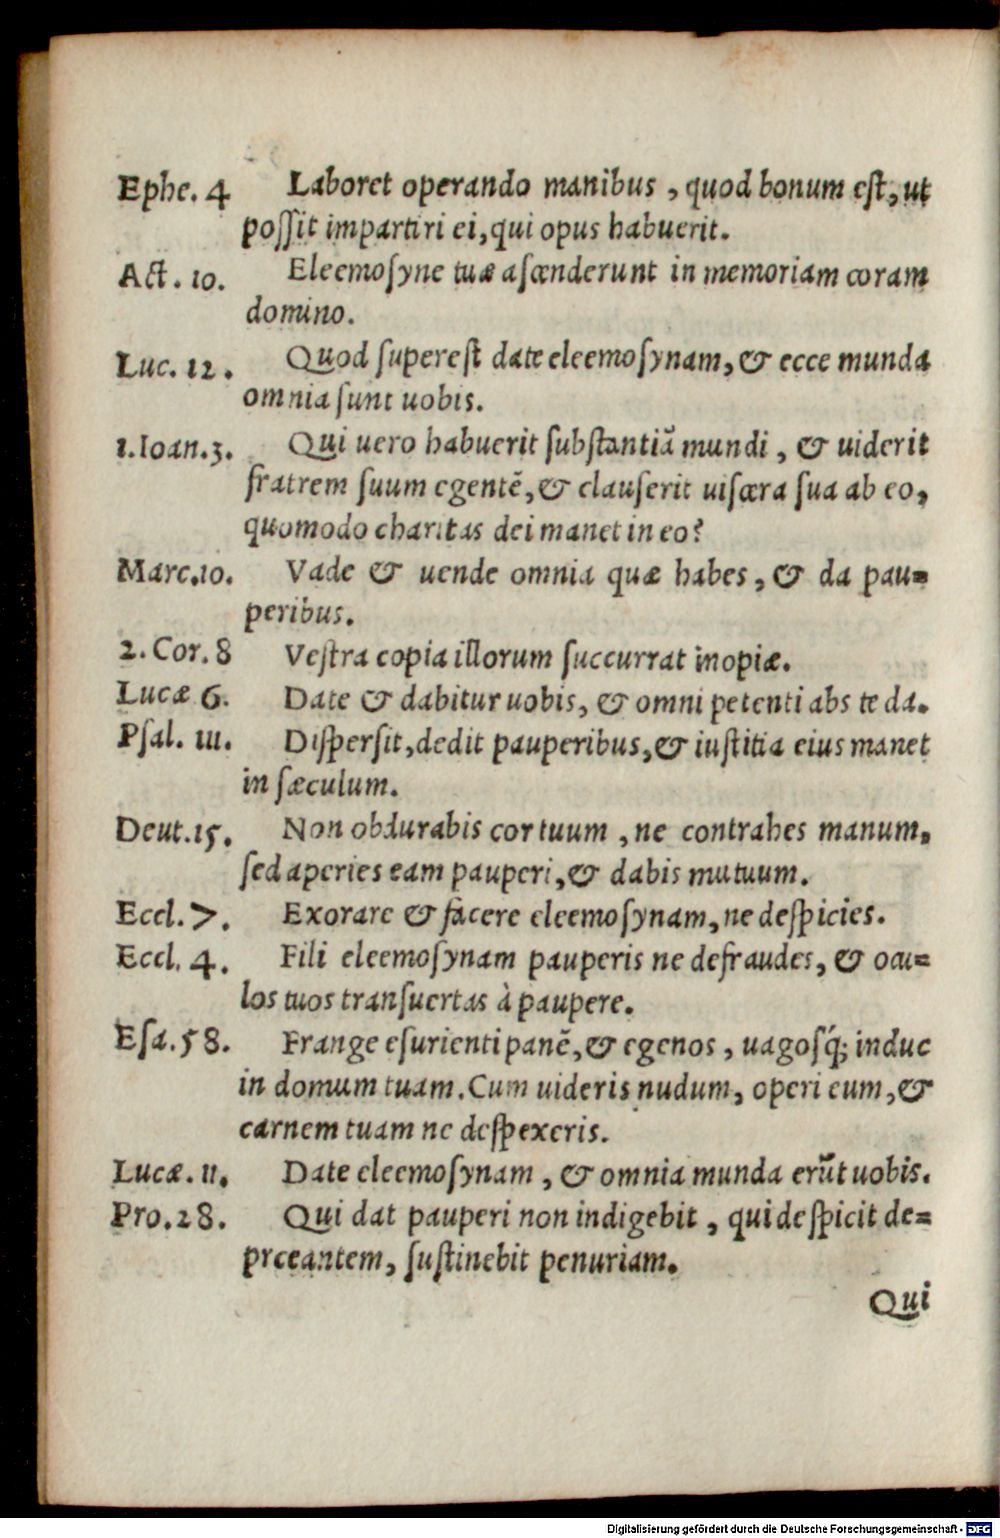 Ephe. 4 Laboret operando manibus, quod bonum est, ut
possit impartiri ei, qui opus habuerit.
Act. 10. Eleemosyne tuæ ascenderunt in memoriam coram
domino.
Luc. 12. Quod superest date eleemosynam, & ecce munda
omnia sunt uobis.
1.Ioan.3. Qui uero habuerit substantiã mundi, & uiderit
fratrem suum egentẽ, & clauserit uiscera sua ab eo,
quomodo charitas dei manet in eo?
Marc.10. Vade & uende omnia quæ habes, & da pau=
peribus.
2. Cor. 8 Vestra copia illorum succurrat inopiæ.
Lucæ 6. Date & dabitur uobis, & omni petenti abs te da.
Psal. 111. Dispersit, dedit pauperibus, & iustitia eius manet
in sæculum.
Deut.15. Non obdurabis cor tuum, ne contrahes manum,
sed aperies eam pauperi, & dabis mutuum.
Eccl. 7. Exorare & facere eleemosynam, ne despicies.
Eccl. 4. Fili eleemosynam pauperis ne defraudes, & ocu=
los tuos transuertas à paupere.
Esa. 58. Frange esurienti panẽ, & egenos, uagosq́; induc
in domum tuam. Cum uideris nudum, operi eum, &
carnem tuam ne despexeris.
Lucæ. 11. Date eleemosynam, & omnia munda erũt uobis.
Pro. 28. Qui dat pauperi non indigebit, qui despicit de=
preeantem, sustinebit penuriam.
Qui
Digitalisierung gefördert durch die Deutsche Forschungsgemeinschaft - DFG